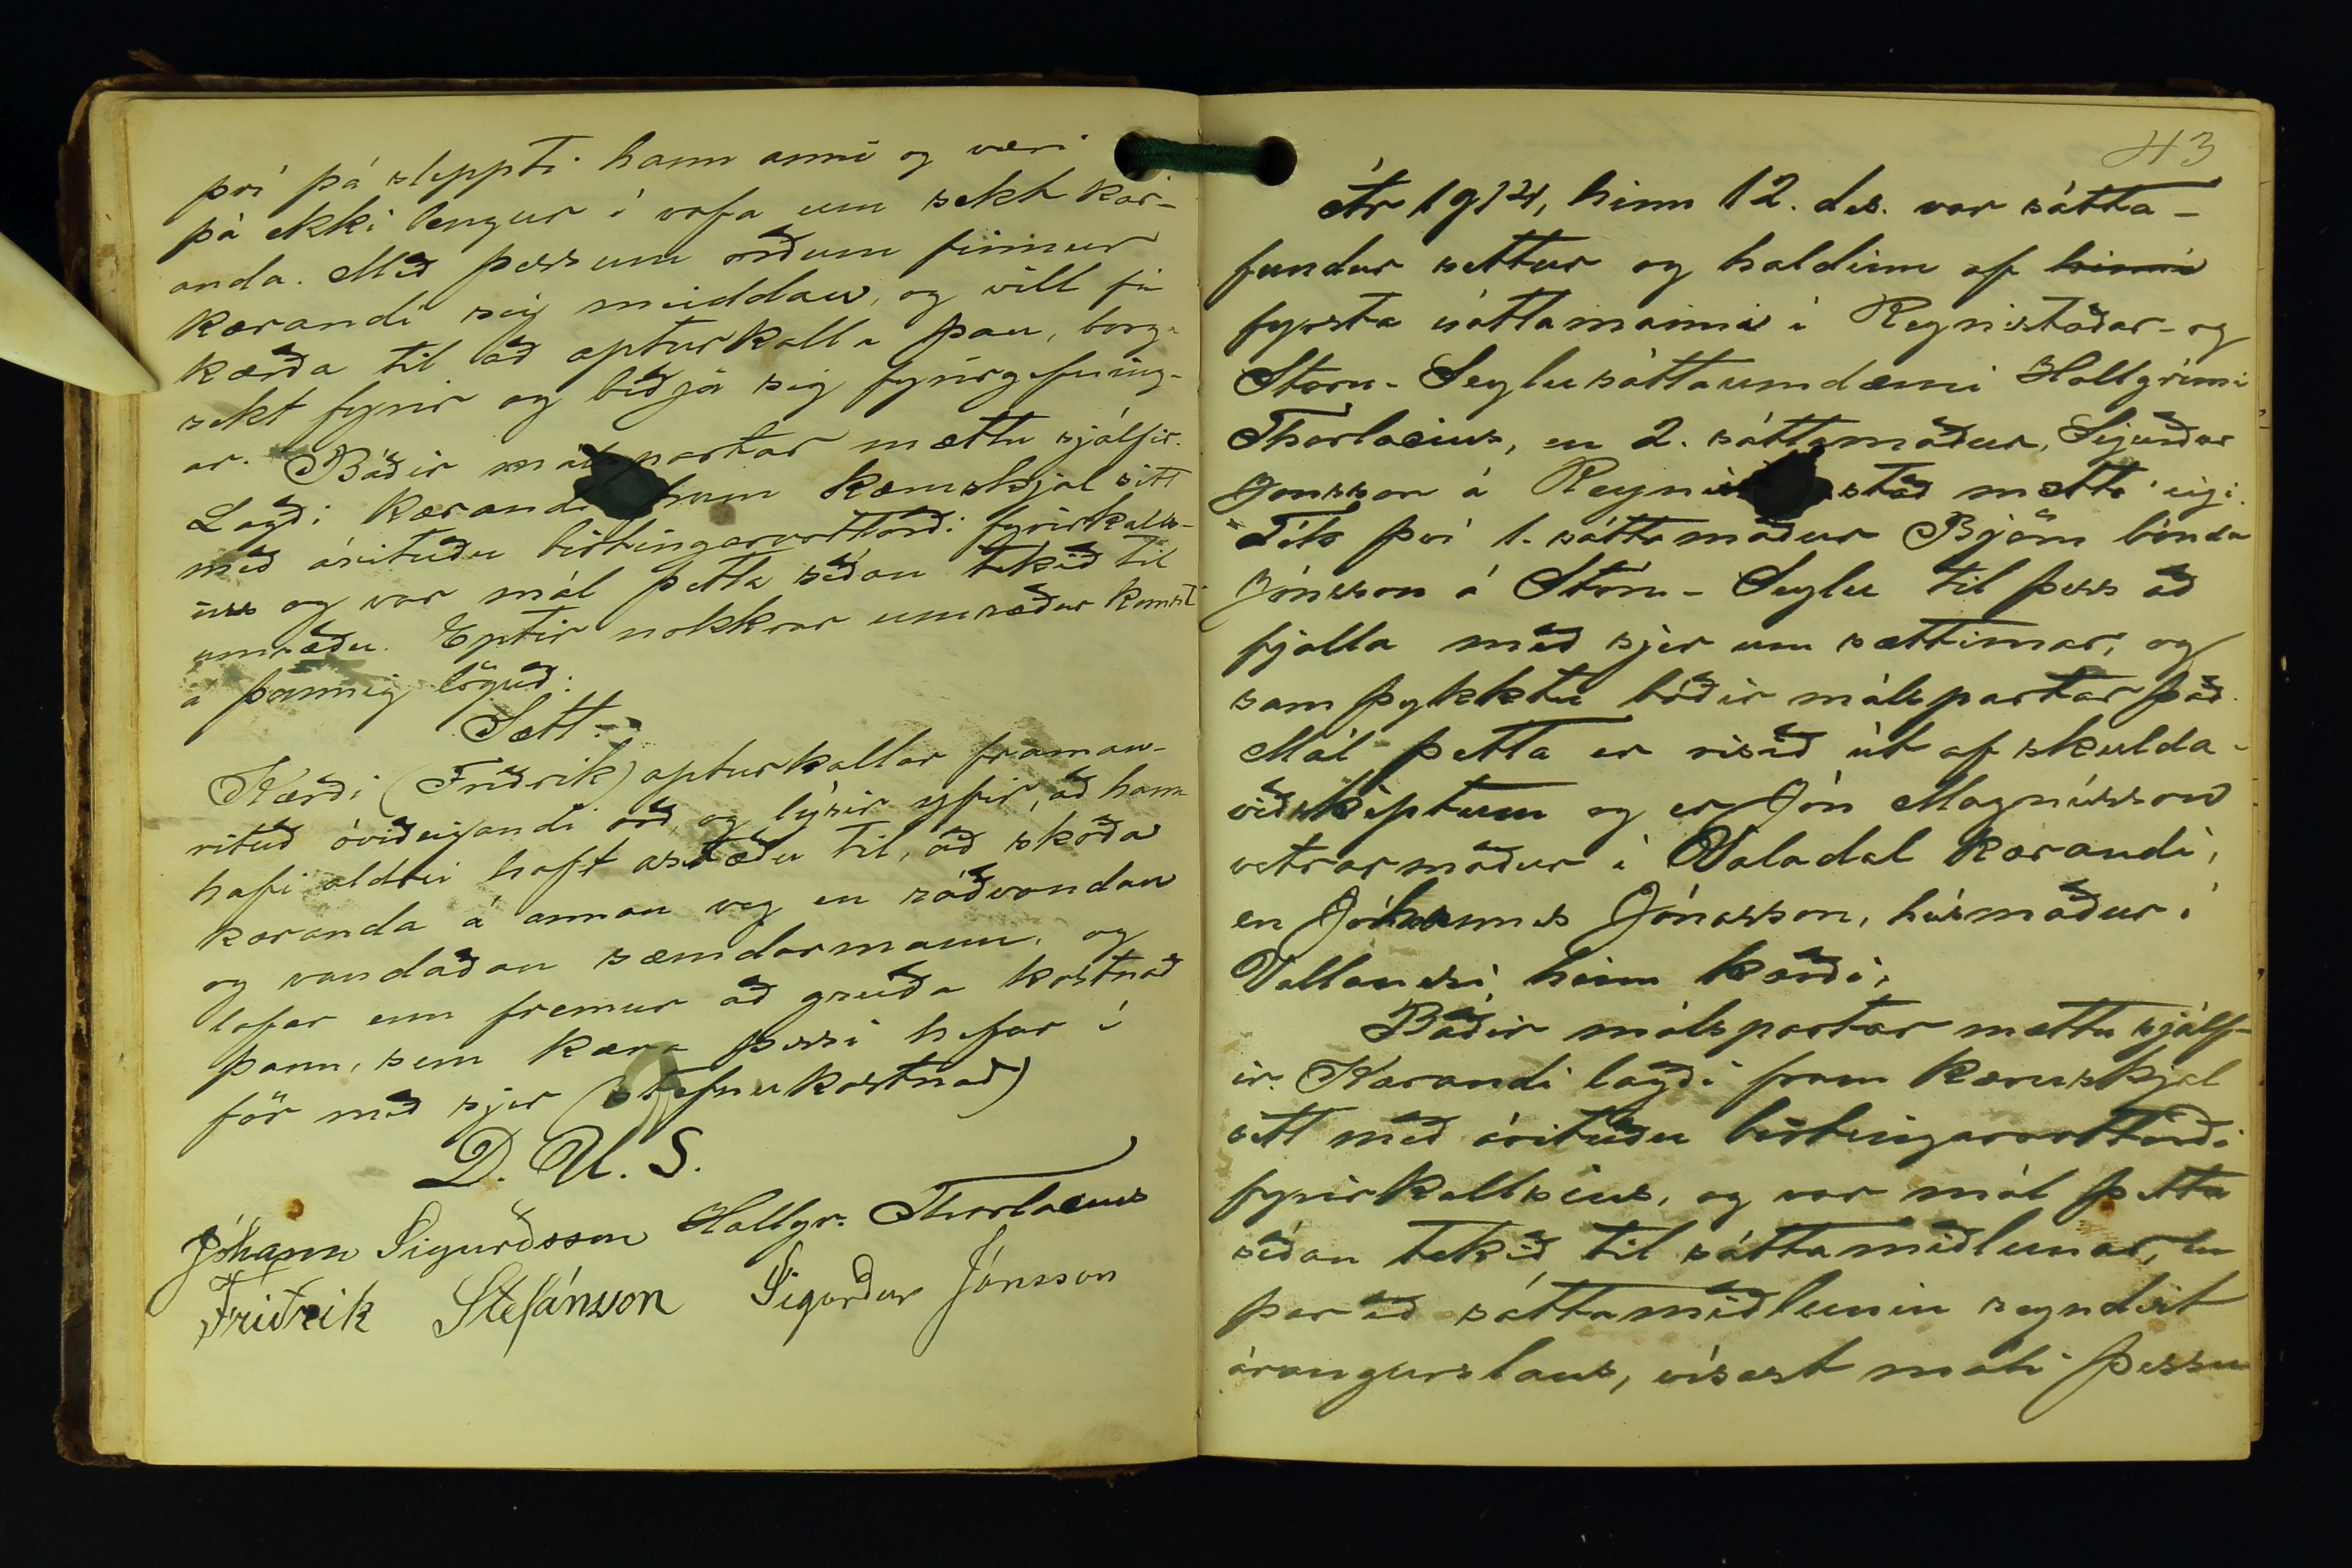 því þá sleppti hann anni og væri
þá ekki lengur í vafa um sekt kær-
anda. Með þessum orðum finnur
kærandi sig meiddan, og vill fá
kærða til að apturkalla þau, borga
sekt fyrir og biðja sig fyrirgefning-
ar. Báðir málspartar mættu sjálfir.
Lagði kærandi fram kæruskjal sitt
með árituðu birtingarvottorði fyrirkalls-
ins og var mál þetta síðan tekið til
umræðu. Eptir nokkrar umræður komst
á þannig löguð:
Sætt:
Kærði (Friðrik) apturkallar framan-
rituð óviðeigandi orð og lýsir yfir, að hann
hafi aldrei haft ástæðu til, að skoða
kæranda á annan veg en ráðvandan
og vandaðan sæmdarmann, og
lofar enn fremur að greiða kostnað
þann, sem kæra þessi hefur í
för með sjer (stefnukostnað)
D. U. S.
Jóhann Sigurðsson Hallgr. Thorlacius
Friðrik Stefánsson Sigurður Jónsson
43
Ár 1914, hinn 12. des. var sátta-
fundur settur og haldinn af hinni
fyrsta sáttamanni í Reynistaðar- og
Stóru-Seylusáttaumdæmi Hallgrími
Thorlacius, en 2. sáttamaður, Sigurður
Jónsson á Reynistað mætti eigi.
Tók því 1. sáttamaður Björn bónda
Jónsson á Stóru-Seylu til þess að
fjalla með sjer um sættirnar, og
samþykktu báðir málspartar það.
Mál þetta er risið út af skulda-
viðskiptum og er Jón Magnússon
vetrarmaður í Valadal kærandi,
en Jóhannes Jónasson, húsmaður í
Vallanesi, hinn kærði.
Báðir málspartar mættu sjálf-
ir. Kærandi lagði fram kæruskjal
sitt með árituðu birtingarvottorði
fyrirkallsins, og var mál þetta
síðan tekið til sáttamiðlunar, en
þar að sáttamiðlunin reyndist
árangurslaus, vísast máli þessu